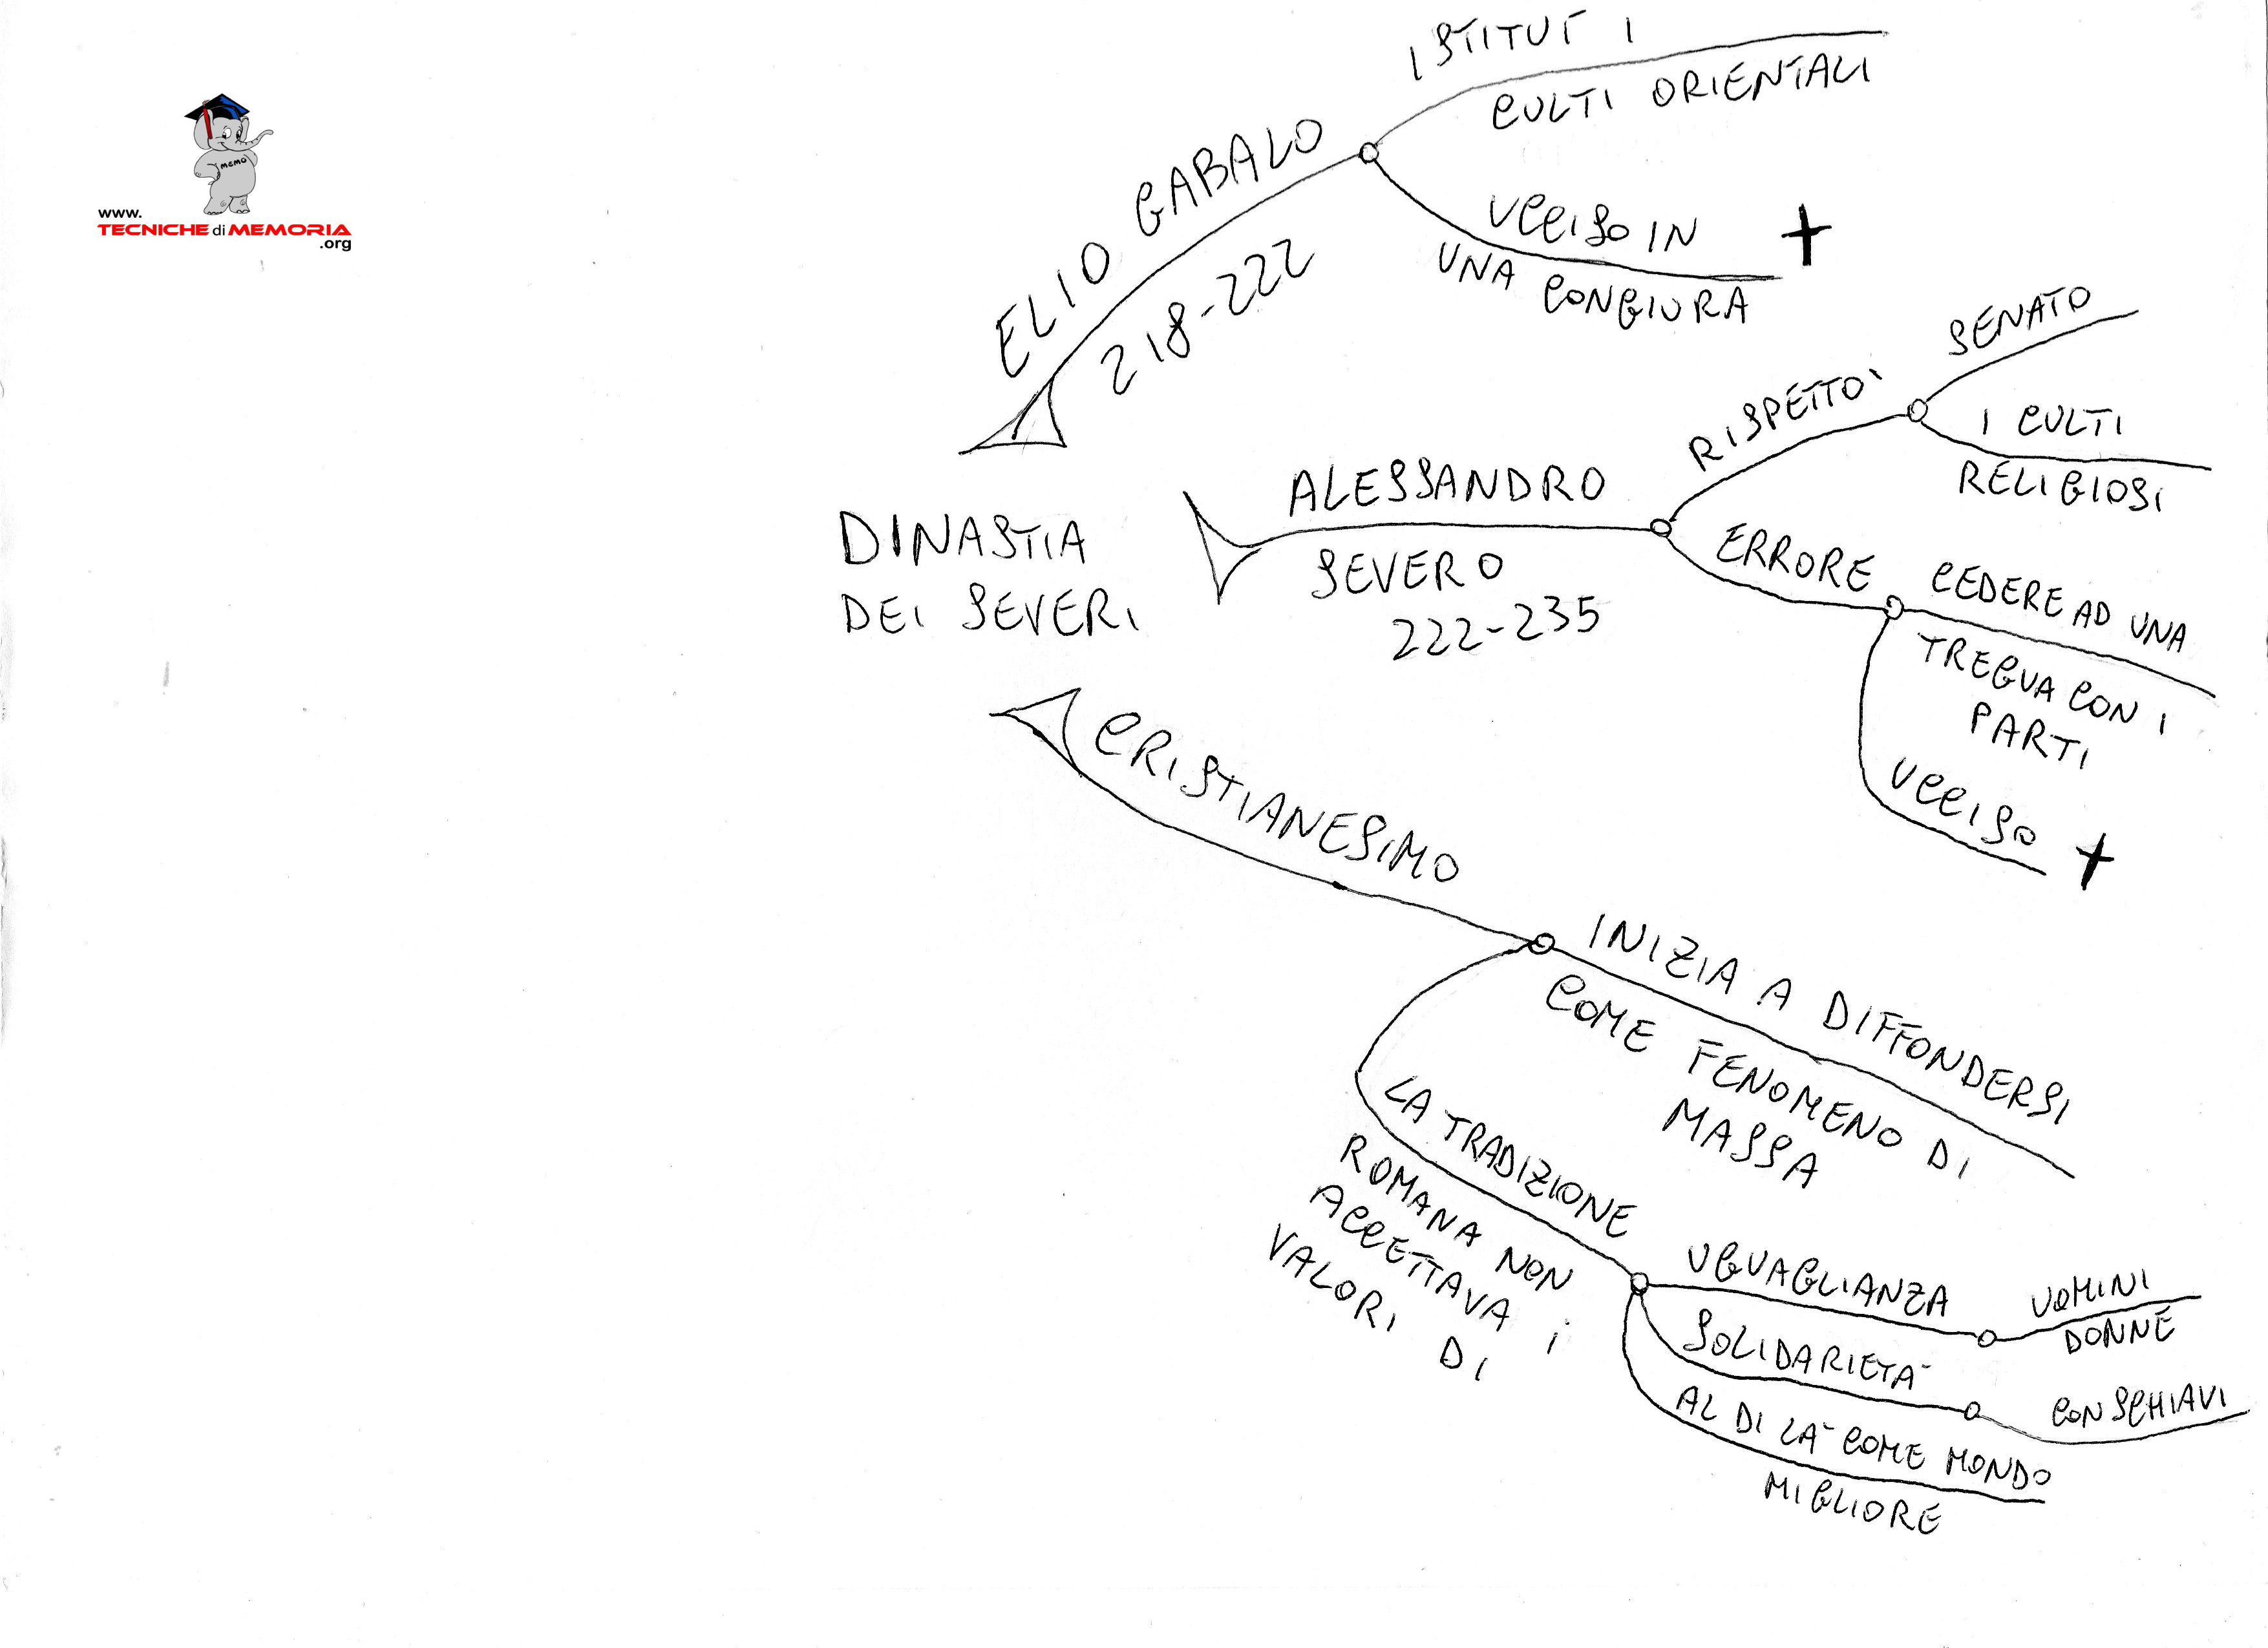 MEMO
www.
TECNICHE di MEMORIA
.org
ISTITUÌ I
CULTI ORIENTALI
ELIO GABALO
218-222
UCCISO IN
UNA CONGIURA
DINASTIA
DEI SEVERI
ALESSANDRO
SEVERO
222-235
RISPETTO'
SENATO
I CULTI
RELIGIOSI
ERRORE
CEDERE AD UNA
TREGUA CON I
PARTI
UCCISO
CRISTIANESIMO
INIZIA A DIFFONDERSI
COME FENOMENO DI
MASSA
LA TRADIZIONE
ROMANA NON
ACCETTAVA i
VALORI DI
UGUAGLIANZA
UOMINI
DONNE
SOLIDARIETA'
CON SCHIAVI
AL DI LA' COME MONDO
MIGLIORE